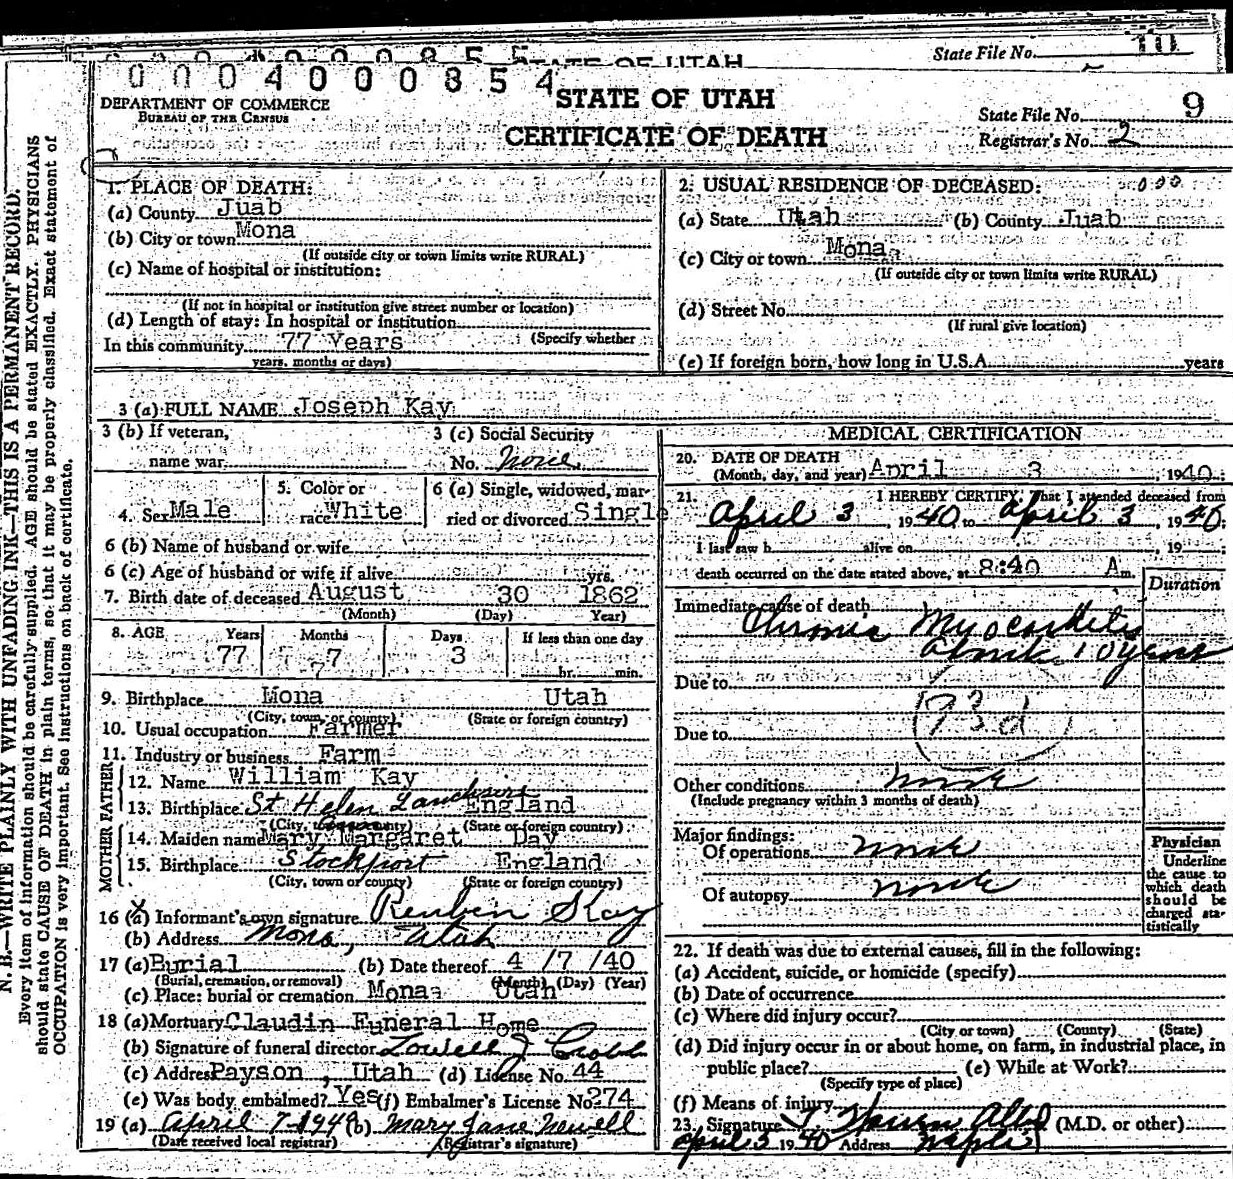 State File No. 10
0004000854
STATE OF UTAH
DEPARTMENT OF COMMERCE
BUREAU OF THE CENSUS
CERTIFICATE OF DEATH
State File No. 9
Registrar's No. 2
N. B.—WRITE PLAINLY WITH UNFADING INK—THIS IS A PERMANENT RECORD.
Every item of information should be carefully supplied. AGE should be stated EXACTLY. PHYSICIANS
should state CAUSE OF DEATH in plain terms, so that it may be properly classified. Exact statement of
OCCUPATION is very important. See instructions on back of certificate.
1. PLACE OF DEATH:
(a) County Juab
(b) City or town Mona
(If outside city or town limits write RURAL)
(c) Name of hospital or institution:
(If not in hospital or institution give street number or location)
(d) Length of stay: In hospital or institution
(Specify whether
In this community 77 Years
years, months or days)
2. USUAL RESIDENCE OF DECEASED:
(a) State Utah (b) County Juab
(c) City or town Mona
(If outside city or town limits write RURAL)
(d) Street No.
(If rural give location)
(e) If foreign born, how long in U.S.A. years
3 (a) FULL NAME Joseph Kay
3 (b) If veteran, name war
3 (c) Social Security No. None
4. Sex Male
5. Color or race White
6 (a) Single, widowed, married or divorced Single
6 (b) Name of husband or wife
6 (c) Age of husband or wife if alive yrs.
7. Birth date of deceased August 30 1862
(Month) (Day) Year)
8. AGE Years Months Days If less than one day
77 7 3 hr. min.
9. Birthplace Mona Utah
(City, town, or county) (State or foreign country)
10. Usual occupation Farmer
11. Industry or business Farm
FATHER
12. Name William Kay
13. Birthplace St Helen England
(State or foreign country)
MOTHER
14. Maiden name Mary Margaret Day
15. Birthplace Stockport England
(City, town or county) (State or foreign country)
16 (a) Informant's own signature Reuben Kay
(b) Address Mona, Utah
17 (a) Burial (b) Date thereof 4 /7 /40
(Burial, cremation, or removal) (Month) (Day) (Year)
(c) Place: burial or cremation Mona Utah
18 (a) Mortuary Claudin Funeral Home
(b) Signature of funeral director Lowell J
(c) Address Payson , Utah (d) License No. 44
(e) Was body embalmed? Yes (f) Embalmer's License No. 274
19 (a) April 7-1940 (b) Mary Jane Newell
(Date received local registrar) (Registrar's signature)
MEDICAL CERTIFICATION
20. DATE OF DEATH
(Month, day, and year) April 3 , 1940
21. I HEREBY CERTIFY, That I attended deceased from
April 3 , 1940 to April 3 , 1940;
I last saw h alive on , 19 ;
death occurred on the date stated above, at 8:40 A m.
Duration
Immediate cause of death
Chronic Myocarditis
10 years
Due to
93d
Due to
Other conditions none
(Include pregnancy within 3 months of death)
Major findings:
Of operations none
Of autopsy none
Physician
Underline
the cause to
which death
should be
charged sta-
tistically
22. If death was due to external causes, fill in the following:
(a) Accident, suicide, or homicide (specify)
(b) Date of occurrence
(c) Where did injury occur?
(City or town) (County) (State)
(d) Did injury occur in or about home, on farm, in industrial place, in
public place? (e) While at Work?
(Specify type of place)
(f) Means of injury
23. Signature (M.D. or other)
April 3 1940 Address